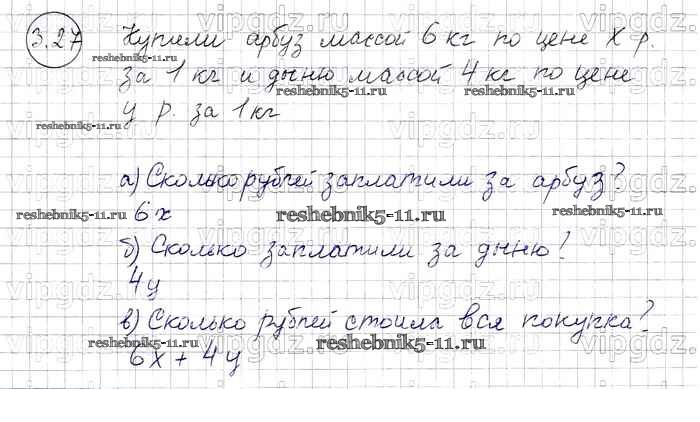 3.27 Купили арбуз массой 6 кг по цене x р.
за 1 кг и дыню массой 4 кг по цене
y р. за 1 кг
а) Сколько рублей заплатили за арбуз?
6x
б) Сколько заплатили за дыню?
4y
в) Сколько рублей стоила вся покупка?
6x + 4y
vipgdz.ru
reshebnik5-11.ru